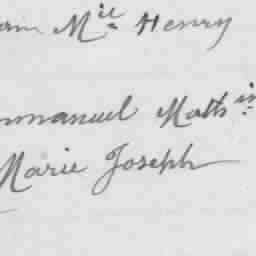 am Mie Henry
mmanuel Mathin
Marie Joseph